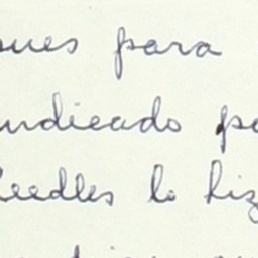 pues para
indicado po
Needles lo hiz